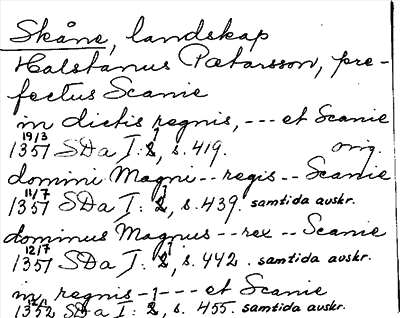 Skåne, landskap
Halstanus Pætarsson, pre-
fectus Scanie
in dictis regnis, --- et Scanie
19/3
1357 SDa I: 2, s. 419. orig.
domini Magni -- regis -- Scanie
11/7
1357 SDa I: 2, s. 439. samtida avskr.
dominus Magnus -- rex -- Scanie
12/7
1357 SDa I: 2, s. 442. samtida avskr.
in regnis -1--- et Scanie
1352 SDa I: 2, s. 455. samtida avskr.